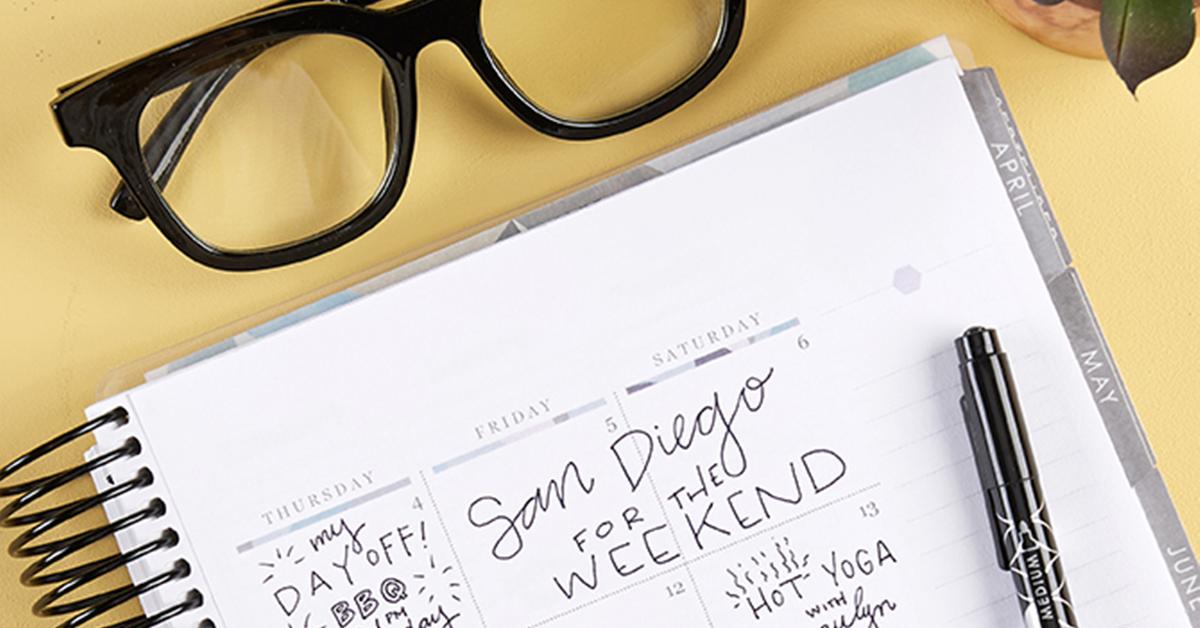 APRIL
MAY
JUNE
SATURDAY
6
FRIDAY
5
THURSDAY
4
San Diego
FOR THE
WEEKENDD
my
DAY OFF!
BBQ
PM
13
12
HOT YOGA
with
MEDIUM